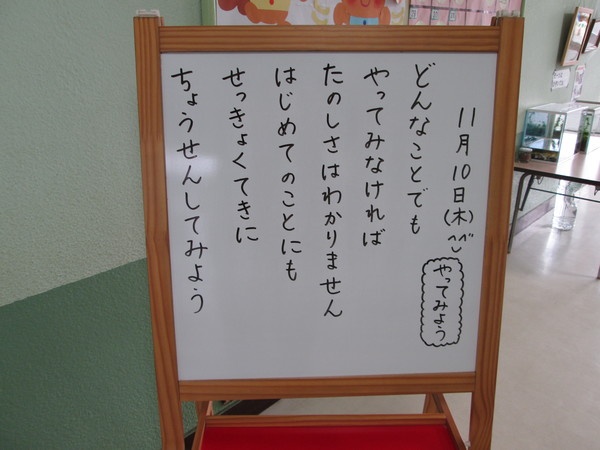 11月10日(木)
やってみよう
どんなことでも
やってみなければ
たのしさはわかりません
はじめてのことにも
せっきょくてきに
ちょうせんしてみよう